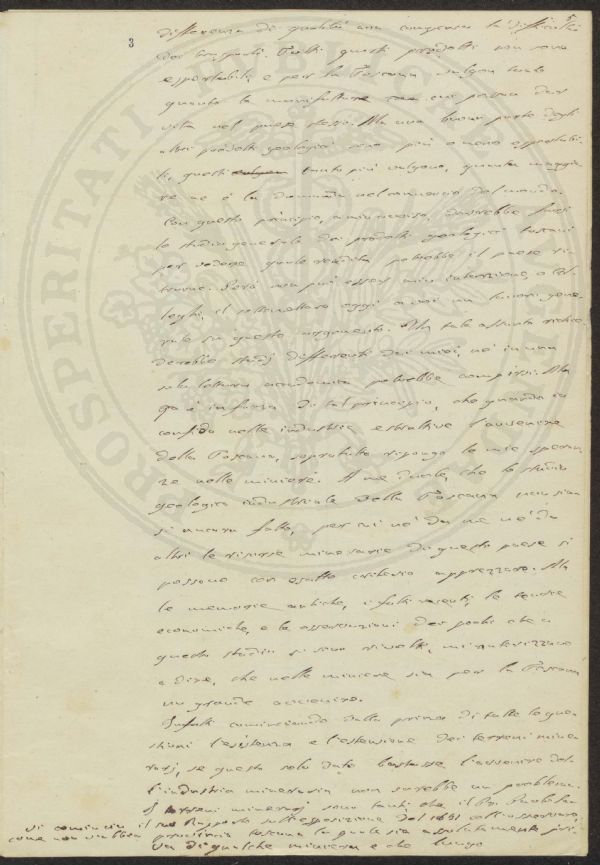 3
differenza di qualità non compensa la difficoltà
dei trasporti. Tutti questi prodotti non sono
esportabili, e per la Toscana valgon tanto
quanto la manifattura cui possono dar
vita nel paese stesso. Ma una buona parte degli
altri prodotti geologici sono più o meno esportabi-
li, questi tanto più valgono, quanto maggio-
re ne è la domanda nel commercio del mondo.
Con questo principio, a mio avviso, dovrebbe farsi
lo studio generale dei prodotti geologici toscani
per vedere quale rendita potrebbe il paese ri-
trarne. Però non può essere mia intenzione, o Col-
leghi, il sottomettere oggi a voi un lavoro gene-
rale su questo argomento. Un tale assunto richie-
derebbe studj differenti dai miei, nè in una
sola lettura accademica potrebbe compirsi. Ma
è in forza di tal principio, che quando io
confido nelle industrie estrattive l'avvenire
della Toscana, soprattutto ripongo le mie speran-
ze nelle miniere. A me duole, che lo studio
geologico industriale della Toscana non siasi
ancora fatto, per cui nè da me nè da
altri le risorse minerarie di questo paese si
possono con esatto criterio apprezzare. Ma
le memorie antiche, i fatti recenti, le teorie
economiche, e le asserzioni dei pochi che a
questo studio si sono rivolti, mi autorizzano
a dire, che nelle miniere sia per la Toscana
un grande avvenire.
Infatti cominciando dalla prima di tutte le que-
stioni l'esistenza e l'estensione dei terreni mine-
rarj, se questo solo dato bastasse l'avvenire del-
l'industria mineraria non sarebbe un problema.
I terreni minerarj sono tanti che il
si comincia il suo Rapporto sull'esposizione del 1861 coll'osservare,
come non vi abbia provincia toscana la quale sia assolutamente pri-
va di qualche miniera e che lungo
PROSPERITATI PUBLICAE